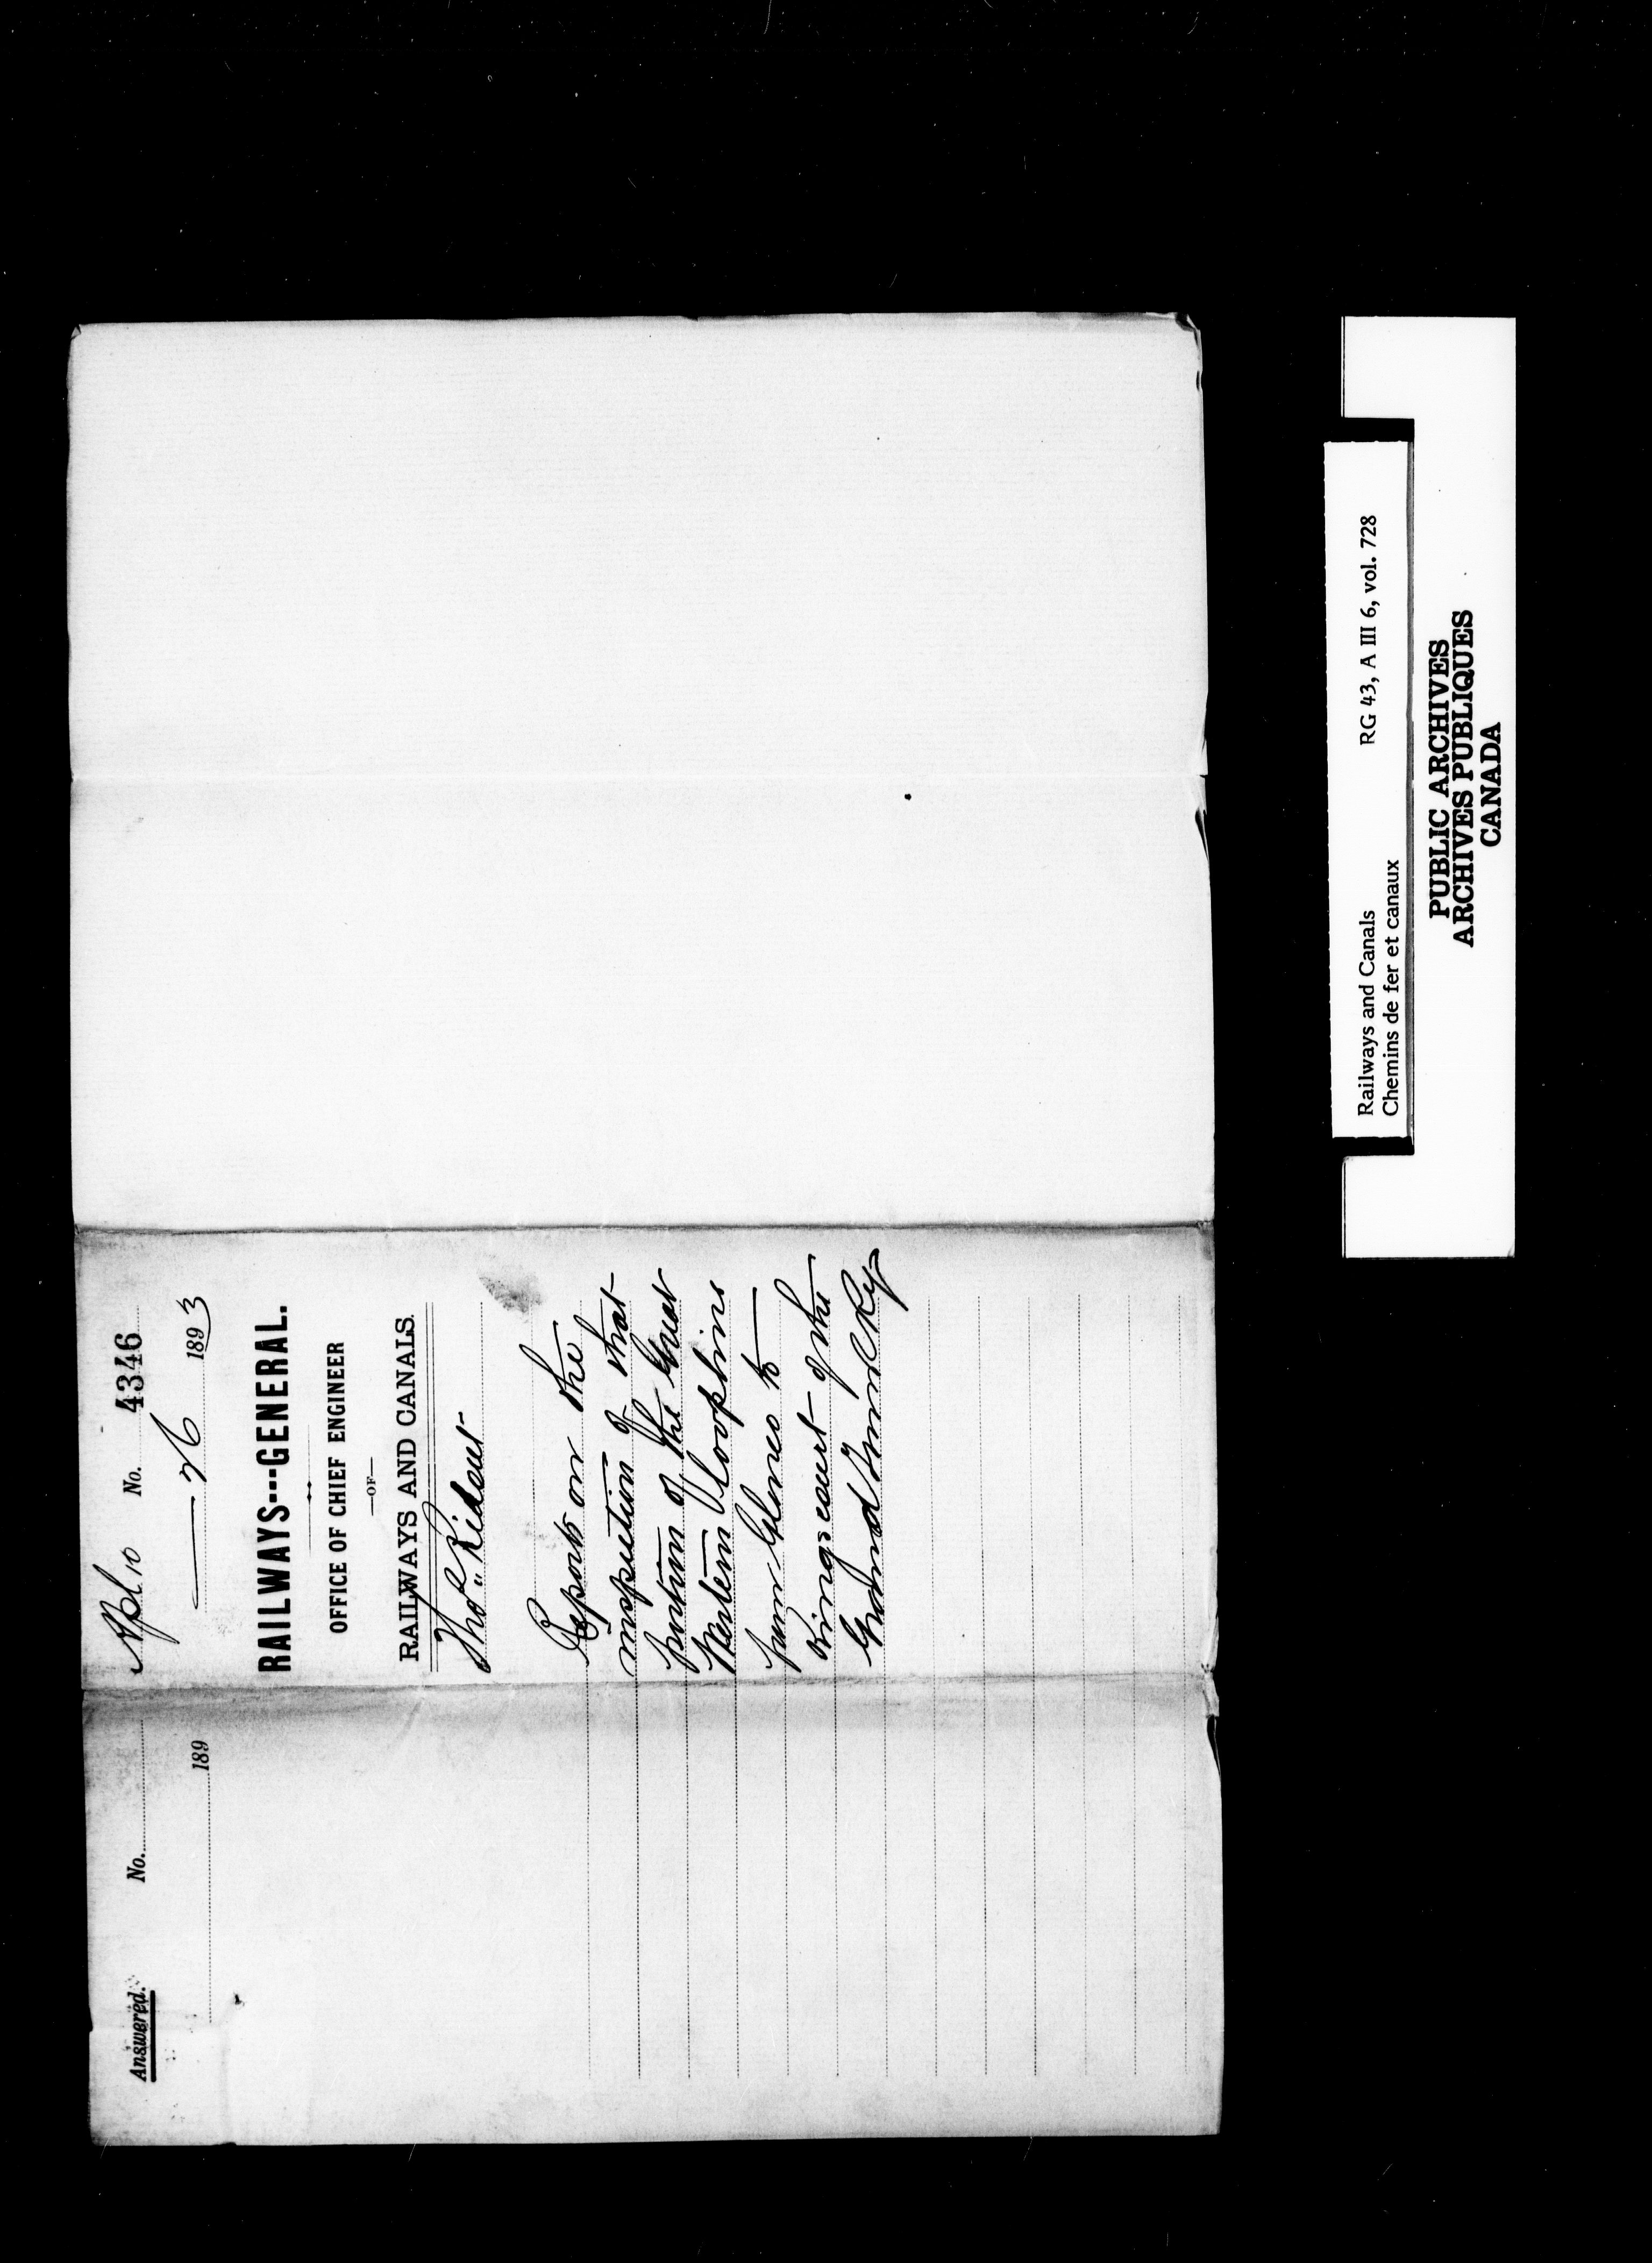 Answered. No. 189
Apl 10 No. 4346
26 1893
RAILWAYS---GENERAL.
OFFICE OF CHIEF ENGINEER
—OF—
RAILWAYS AND CANALS.
Thos Ridout
Reports on the
inspection of that
portion of the Great
Western Loopline
from Glencoe to
Kingscourt of the
Grand Trunk Ry
Railways and Canals RG 43, A III 6, vol. 728
Chemins de fer et canaux
PUBLIC ARCHIVES
ARCHIVES PUBLIQUES
CANADA